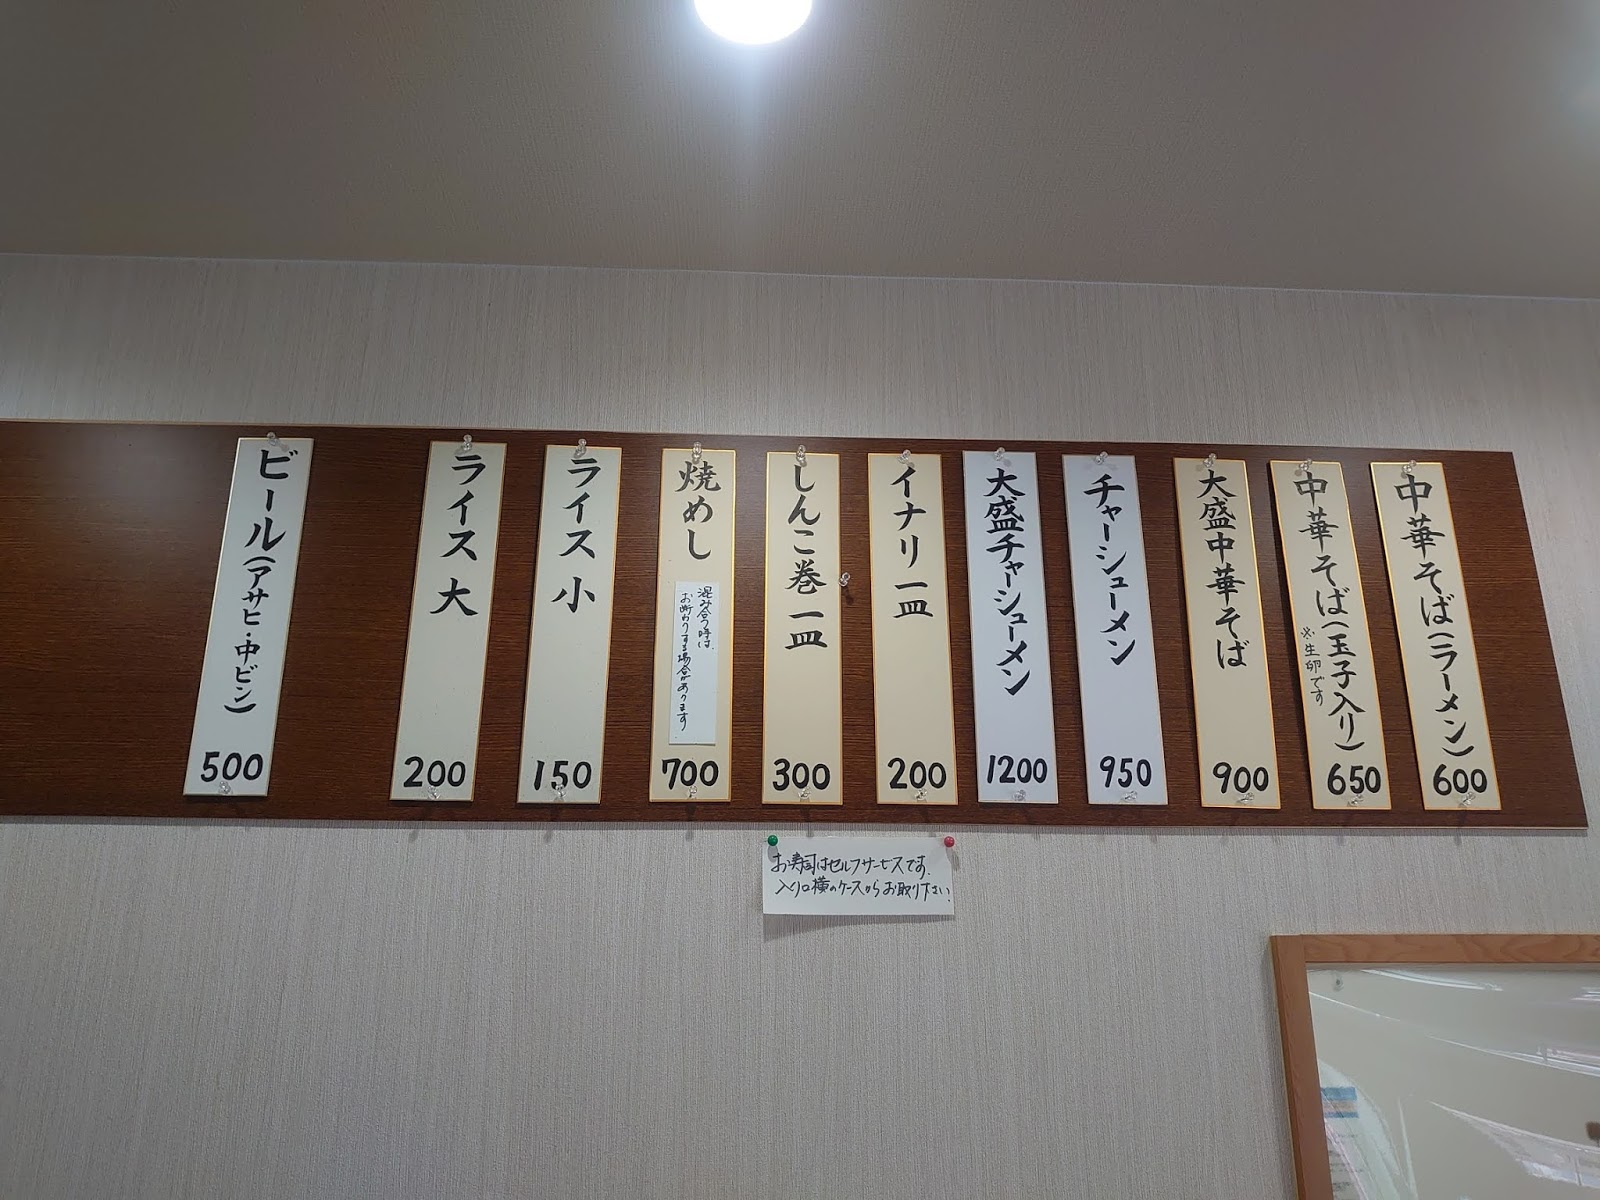 中華そば(ラーメン)
600
中華そば(玉子入り)
※生卵です
650
大盛中華そば
900
チャーシューメン
950
大盛チャーシューメン
1200
イナリ一皿
200
しんこ巻一皿
300
焼めし
混み合う時は、
お断りする場合があります
700
ライス 小
150
ライス 大
200
ビール(アサヒ・中ビン)
500
お寿司はセルフサービスです。
入り口横のケースからお取り下さい。